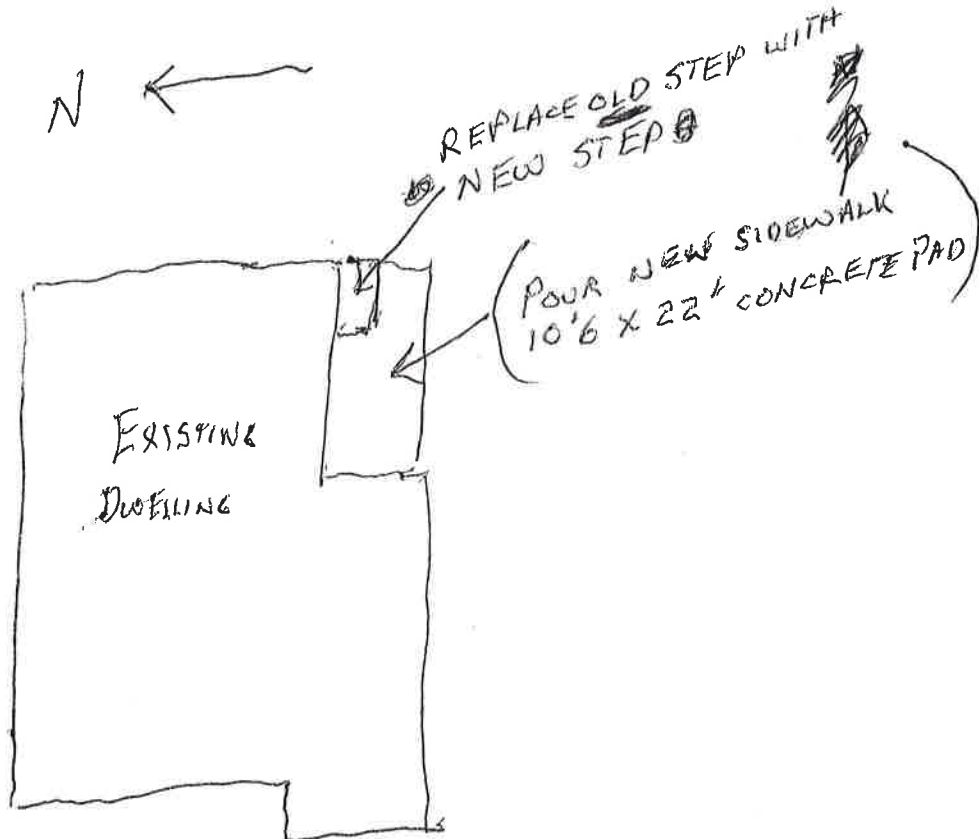 N
REPLACE OLD STEP WITH
NEW STEP
POUR NEW SIDEWALK
10'6 X 22' CONCRETE PAD
EXISTING
DWELLING